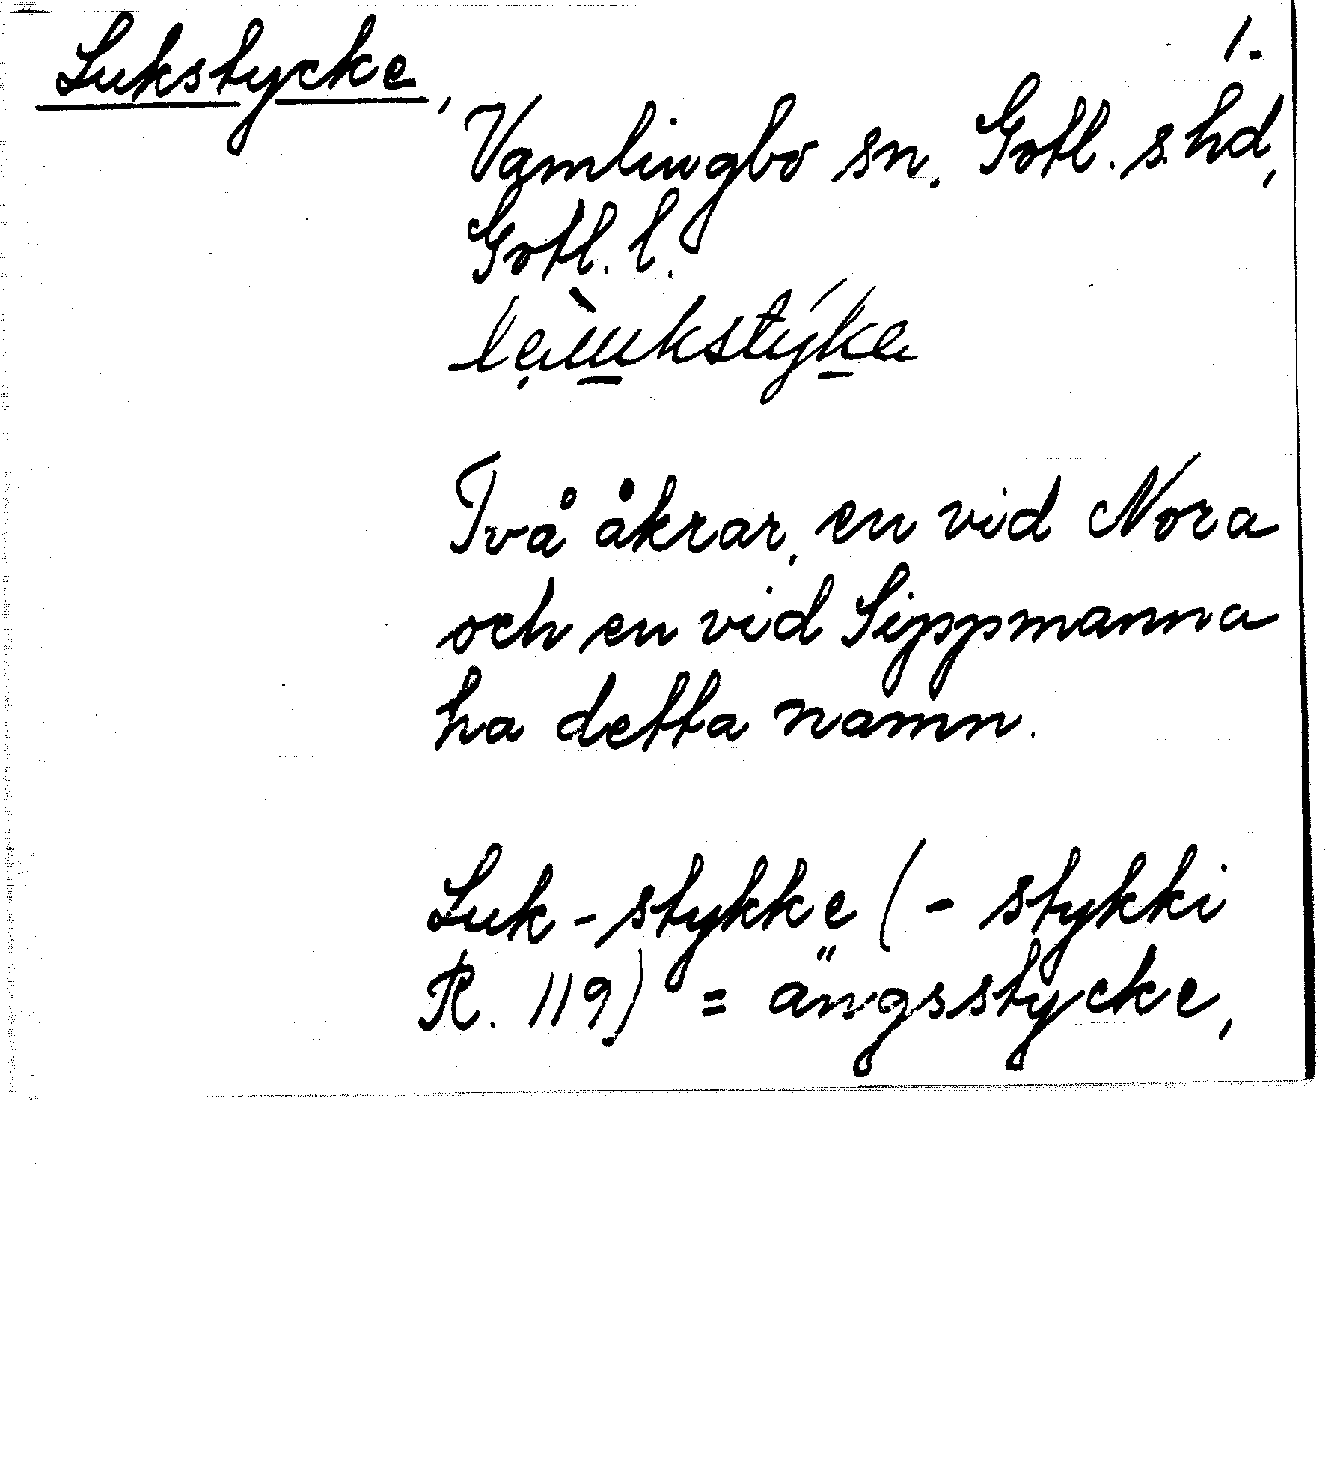 Lukstycke,
1.
Vamlingbo sn. Gotl. s. hd,
Gotl. l.
Två åkrar, en vid Nora
och en vid Sippmanna
ha detta namn.
Luk-stykke (-stykki
R. 119) = ängsstycke,